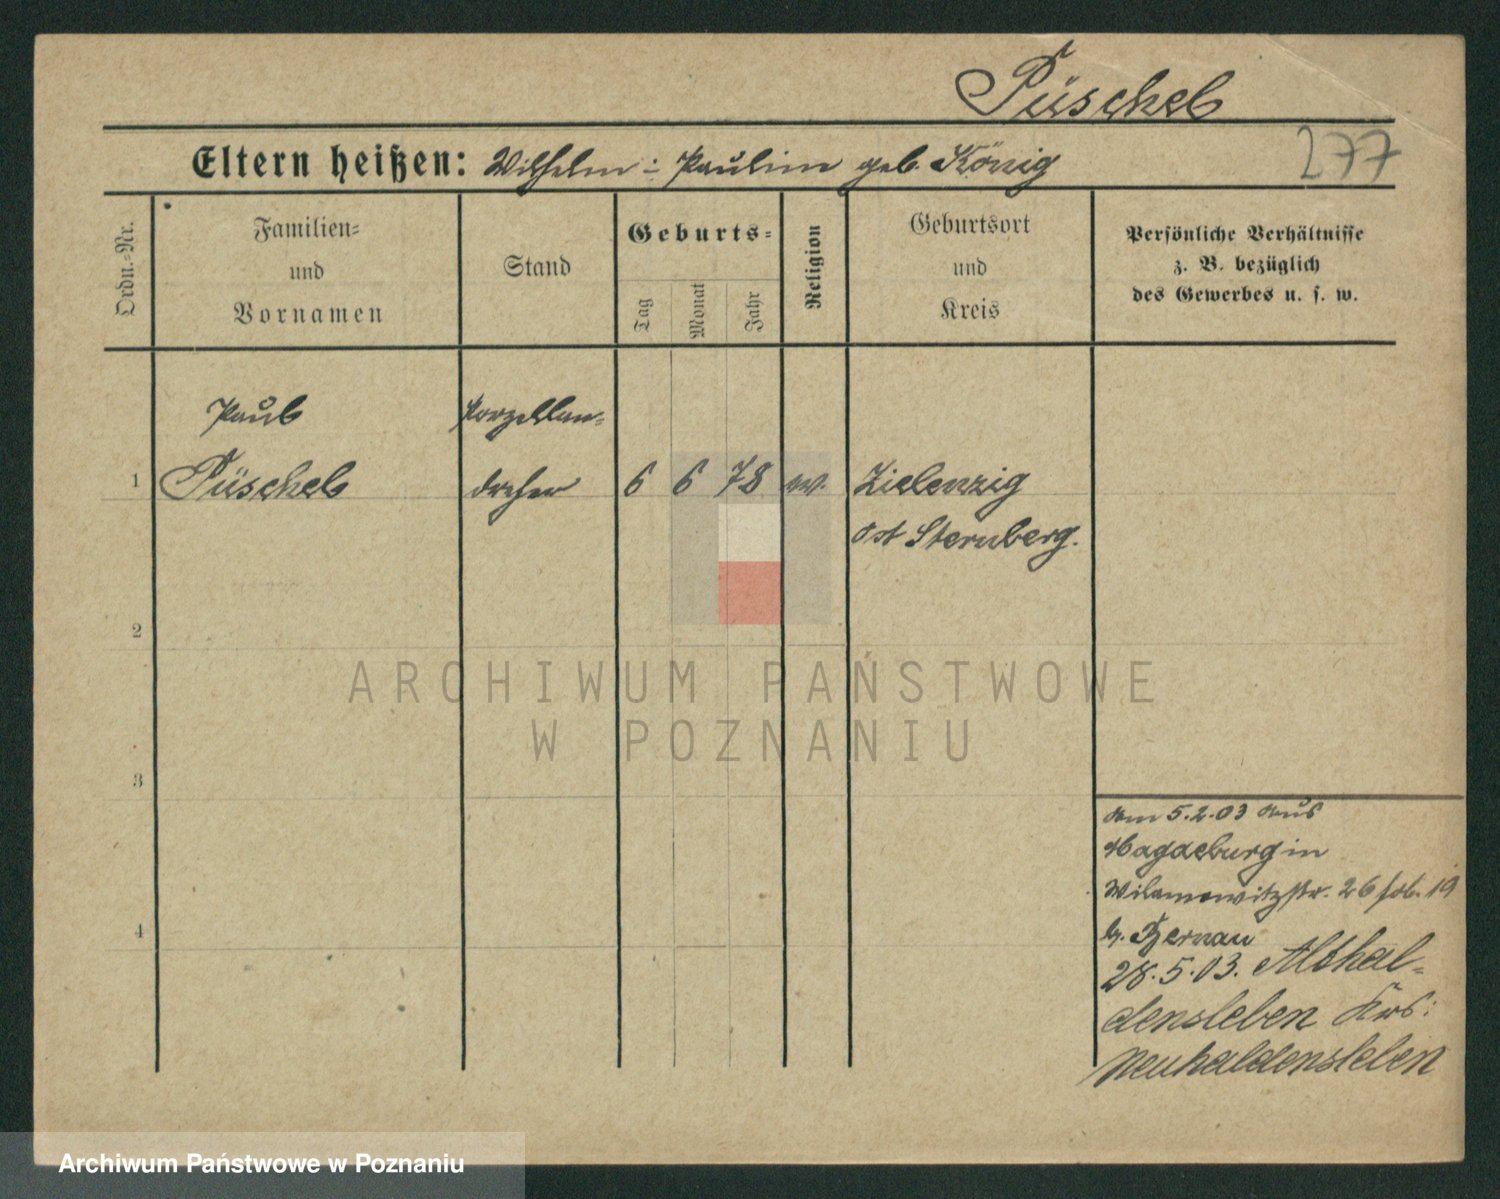 Püschel
Eltern heißen: Wilhelm u. Pauline geb. König
277
Ordn.-Nr.
Familien-
und
Vornamen
Stand
Geburts-
Tag
Monat
Jahr
Religion
Geburtsort
und
Kreis
Persönliche Verhältnisse
z. B. bezüglich
des Gewerbes u. s. w.
Paul
Porzellan-
1 Püschel dreher 6 6 78 ev. Zielenzig
Ost Sternberg.
2
ARCHIWUM PAŃSTWOWE
W POZNANIU
3
4
Am 5.2.03 aus
Magdeburg in
Wilamowitzstr. 26 19
b. Bernau
28.5.03. Althal-
densleben Krs:
Neuhaldensleben
Archiwum Państwowe w Poznaniu